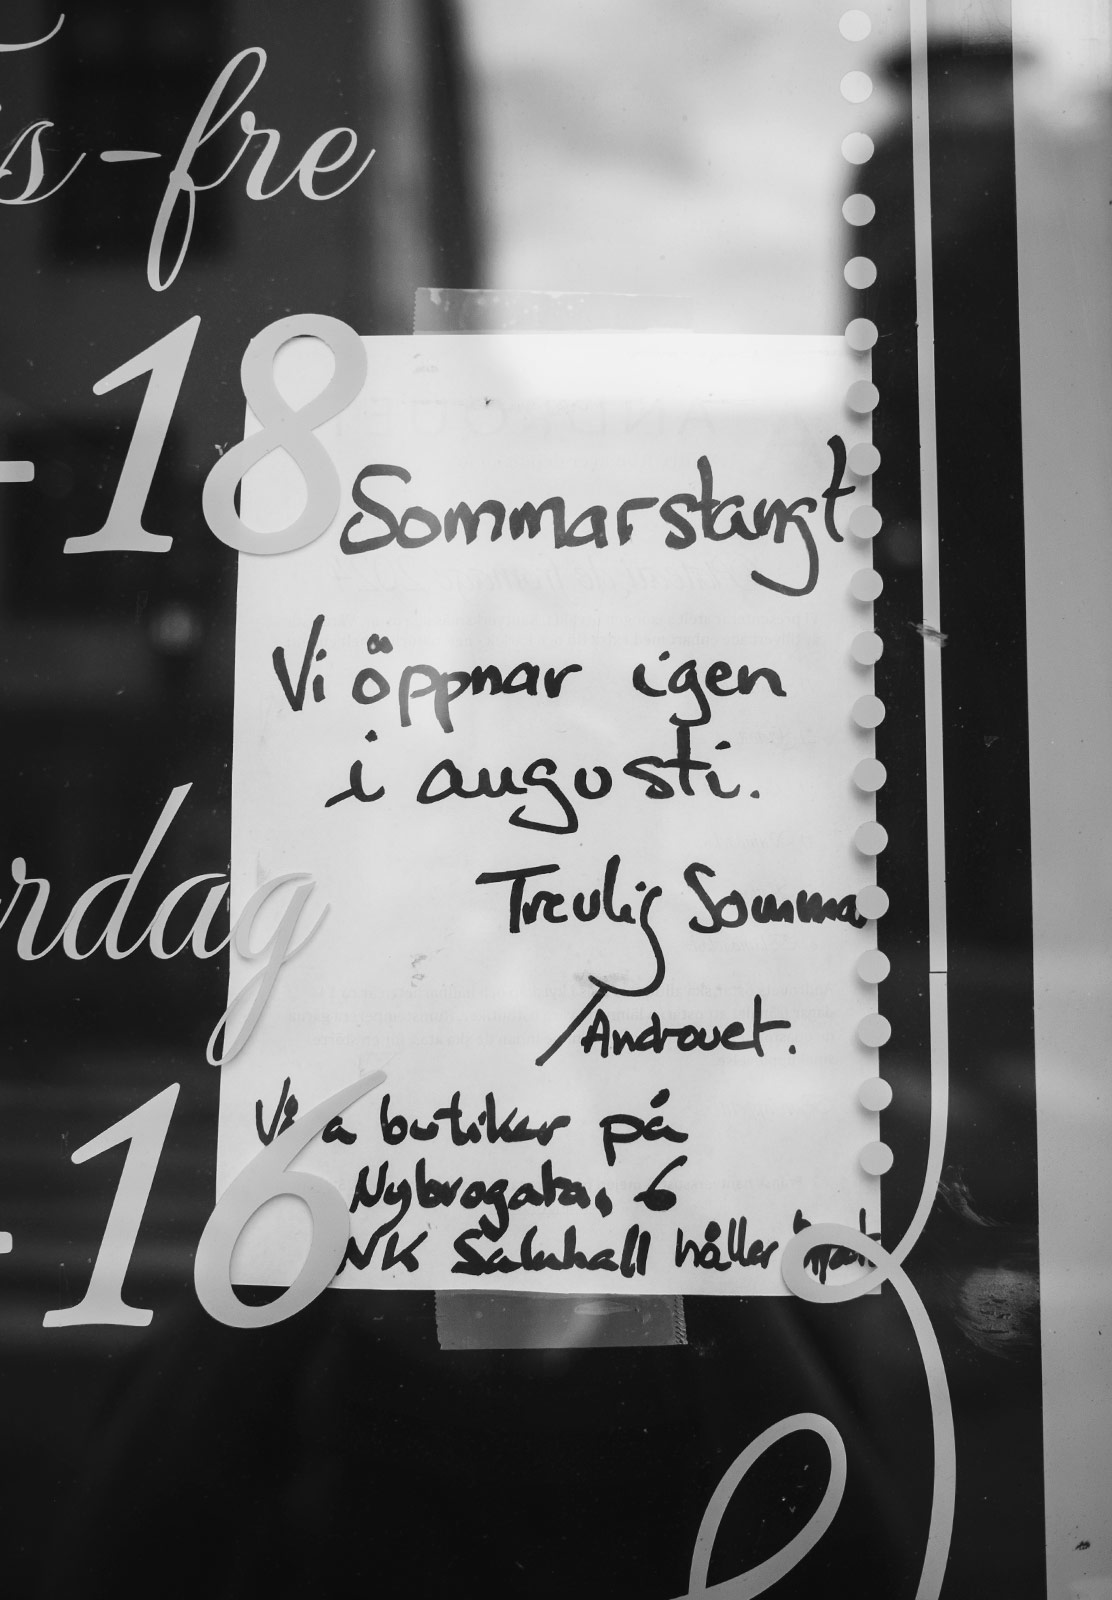 s-fre
-18
Sommarstängt
Vi öppnar igen
i augusti.
Trevlig Somma
/Androuet.
Våra butiker på
Nybrogatan 6
NK Saluhall håller
rdag
-16